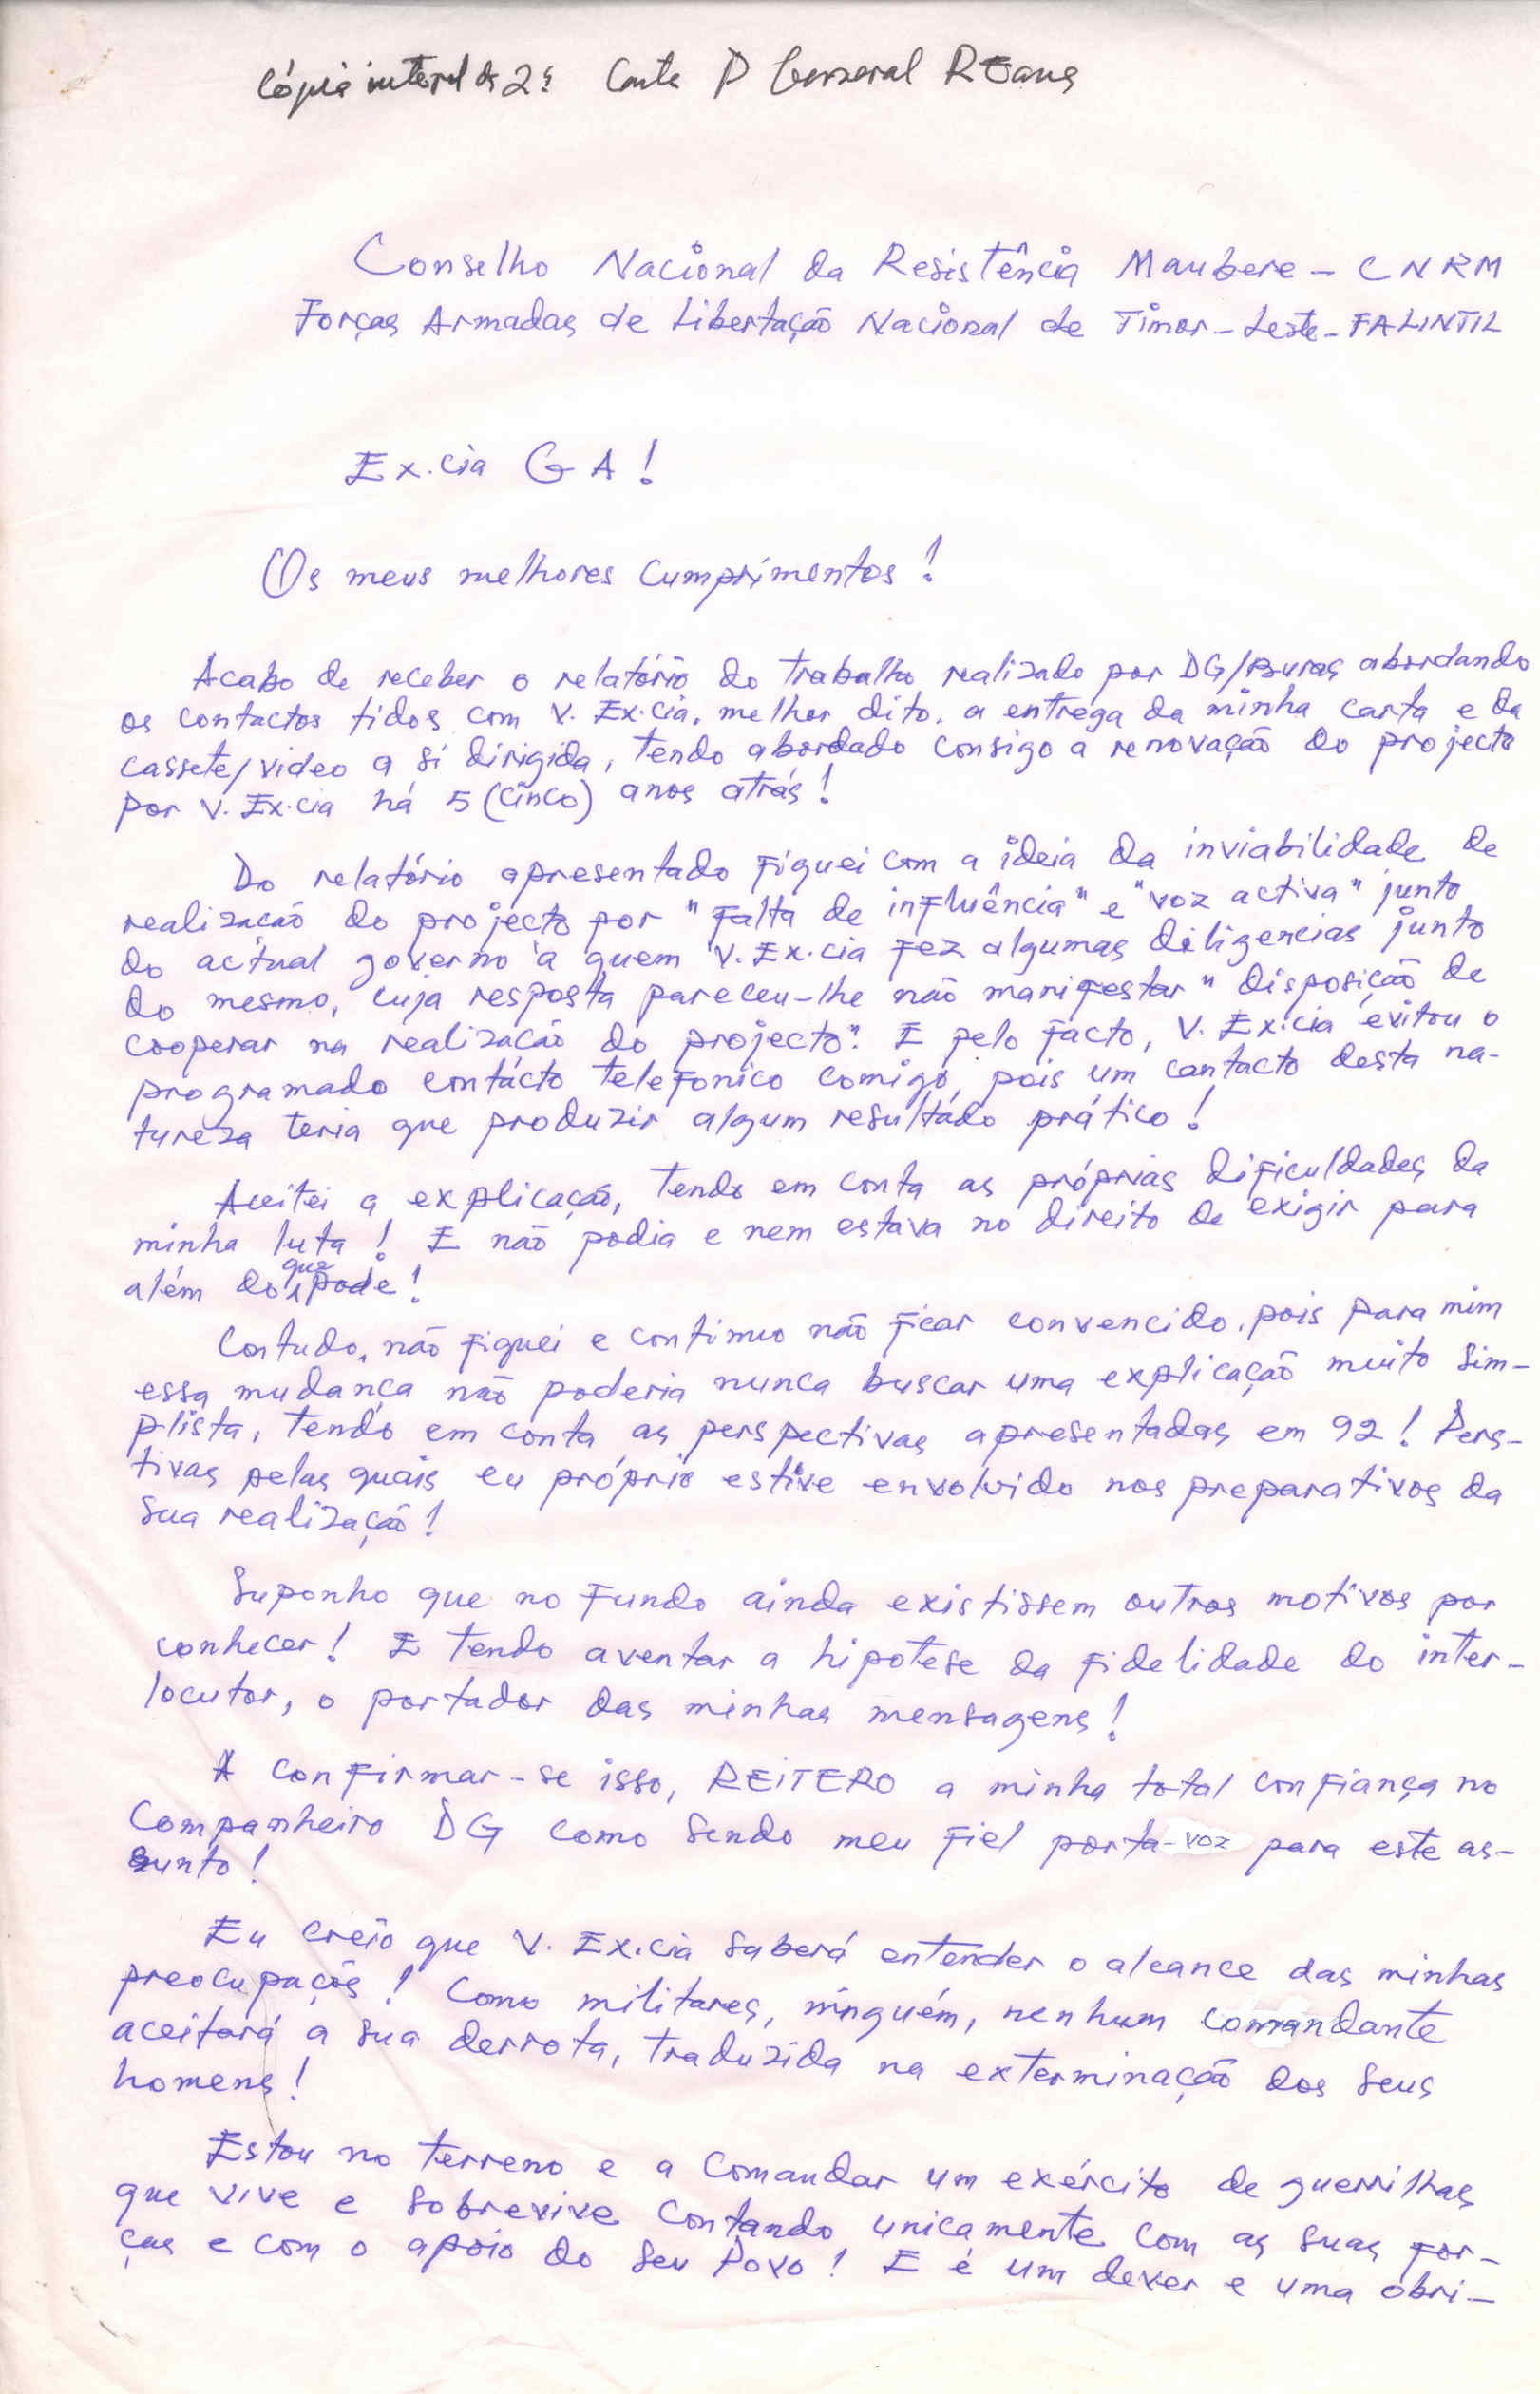 Cópia integral da 2ª Carta P General REanes
Conselho Nacional da Resistência Maubere - CNRM
Forças Armadas de Libertação Nacional de Timor-Leste-FALINTIL
Ex.cia GA!
Os meus melhores cumprimentos!
Acabo de receber o relatório do trabalho realizado por DG/Buras abordando
os contactos tidos com V. Ex.cia, melhor dito, a entrega da minha carta e da
cassete/video a si dirigida, tendo abordado consigo a renovação do projecto
por V. Ex.cia há 5 (cinco) anos atrás!
Do relatório apresentado fiquei com a ideia da inviabilidade de
realizacão do projecto por "falta de influência" e "voz activa" junto
do actual governo a quem V. Ex.cia fez algumas diligencias junto
do mesmo, cuja resposta pareceu-lhe não manifestar "disposição de
cooperar na realizacão do projecto". E pelo facto, V. Ex.cia evitou o
programado contácto telefonico comigo, pois um contacto desta na-
tureza teria que produzir algum resultádo prático!
Aceitei a explicação, tendo em conta as próprias dificuldades da
minha luta! E não podia e nem estava no direito de exigir para
além do que pode!
Contudo, não fiquei e continuo não ficar convencido, pois para mim
essa mudança não poderia nunca buscar uma explicação muito sim-
plista, tendo em conta as perspectivas apresentadas em 92! Pers-
tivas pelas quais eu próprio estive envolvido nos preparativos da
sua realização!
Suponho que no fundo ainda existissem outros motivos por
conhecer! E tendo aventar a hipotese da fidelidade do inter-
locutor, o portador das minhas mensagens!
A confirmar-se isso, REITERO a minha total confiança no
Companheiro DG como sendo meu fiel porta-voz para este as-
sunto!
Eu creio que V. Ex.cia saberá entender o alcance das minhas
preocupações! Como militares, ninguém, nenhum comandante
aceitará a sua derrota, traduzida na exterminação dos seus
homens!
Estou no terreno e a comandar um exército de guerrilhas
que vive e sobrevive contando unicamente com as suas for-
ças e com o apoio do seu Povo! E é um dever e uma obri-